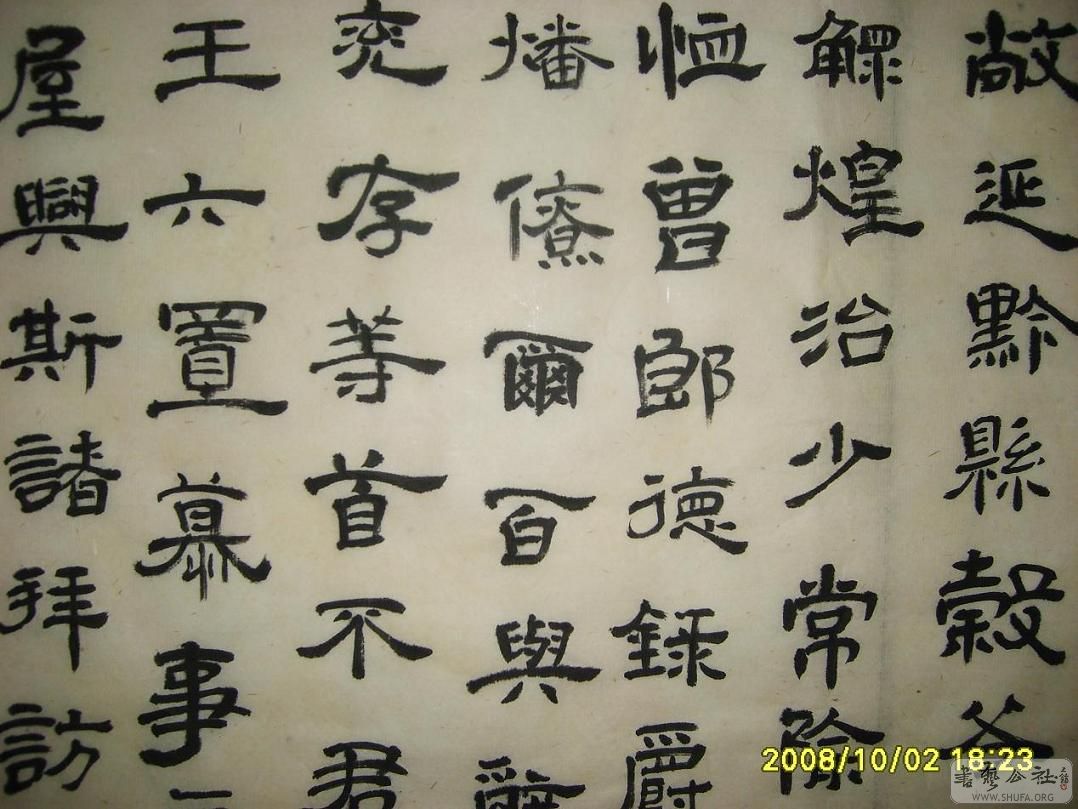 敞延黔縣穀父
鰥煌治少常除
恤曾郎德錄爵
燔僚爾百與辭
兖存等首不君
王六置慕事
屋興斯諸拜訪
2008/10/02 18:23
書藝公社
WWW.SHUFA.ORG